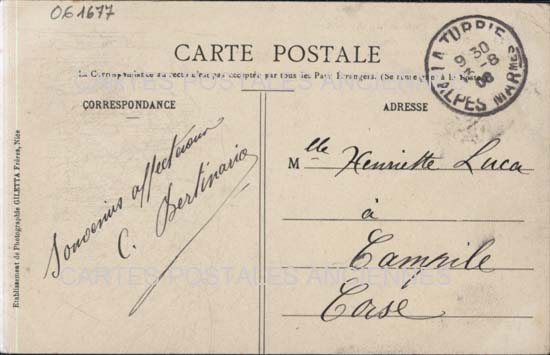 061677
CARTE POSTALE
La Correspondance au recto n'est pas acceptée par tous les Pays Étrangers. (Se renseigner à la Poste)
CORRESPONDANCE
ADRESSE
LA TURBIE
9 30
3 - 8
06
ALPES MARMES
Souvenirs affectueux
C. Bertinaria
Mlle Henriette Luca
à
Campile
Corse
Etablissement de Photographie GILETTA Frères, Nice
CARTES POSTALES ANCIENNES
CARTES POSTALES ANCIENNES